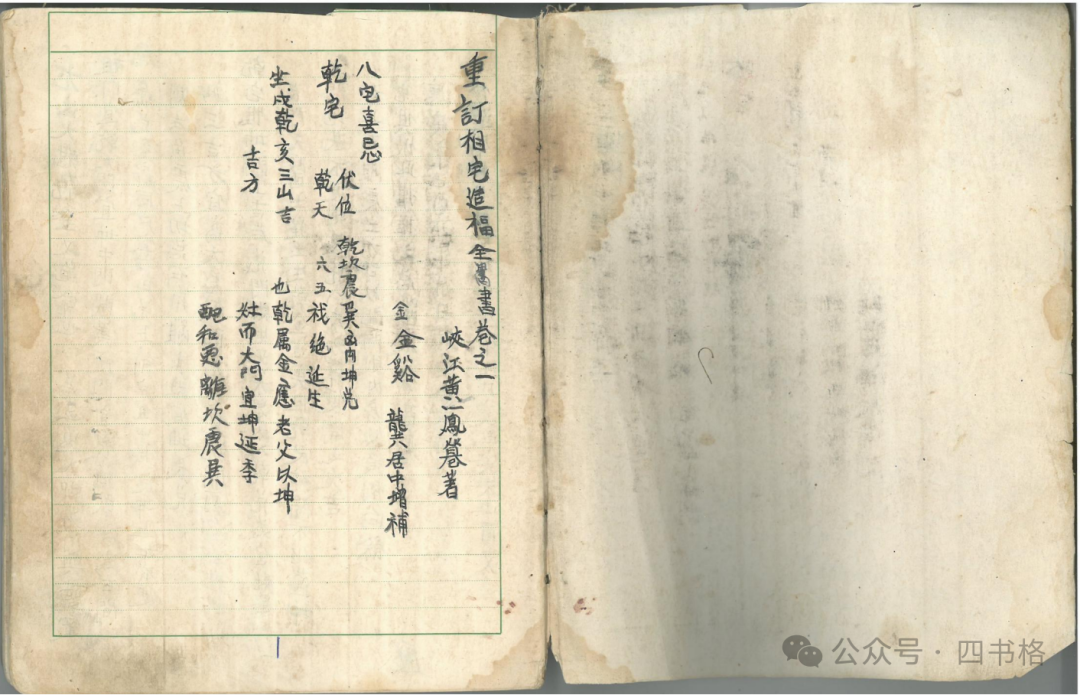 重訂相宅造福全書卷之一
峽江黃一鳳巻著
金金谿 龔居中增補
八宅喜忌
伏位 乾坎震巽離坤兌
乾宅 乾天 六五祸絶延生
坐戌乾亥三山吉 也乾属金應老父以坤
吉方 灶而大門宜坤延季
配和忌離坎震巽
公众号·四书格